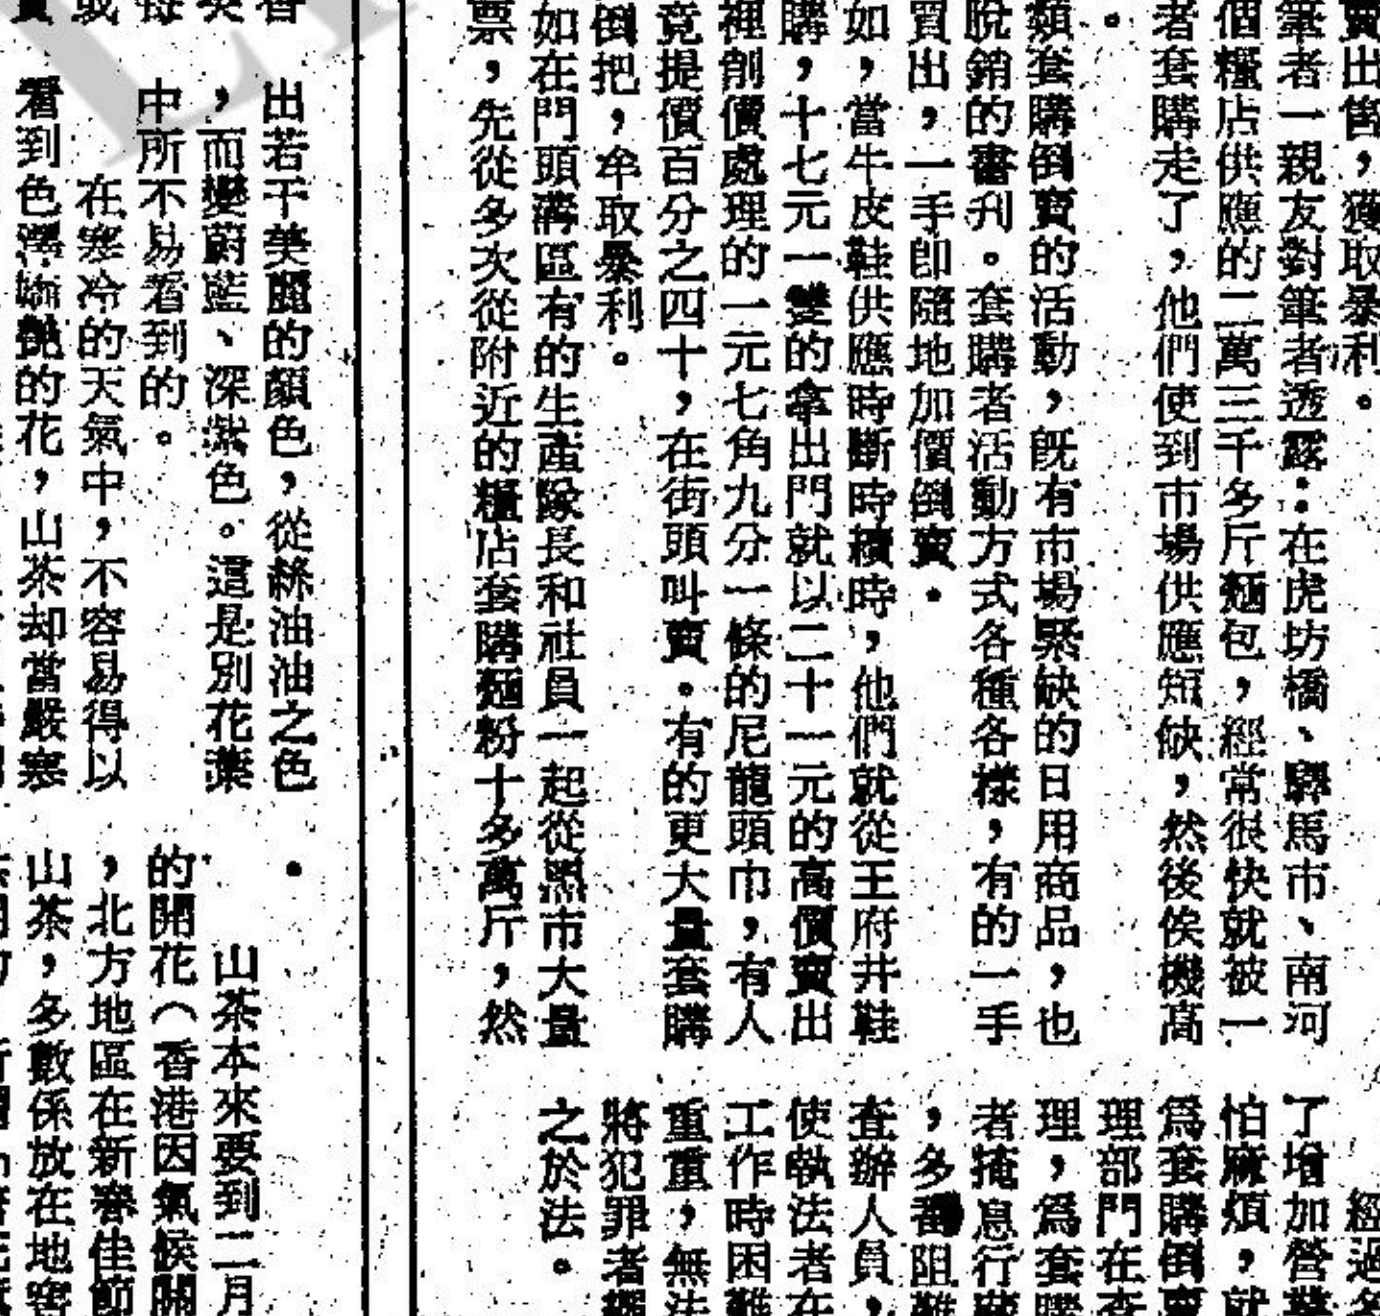 賣出售,獲取暴利。
筆者一親友對筆者透露:在虎坊橋、騾馬市、南河
個糧店供應的二萬三千多斤麵包,經常很快就被一
者套購走了,他們使到市場供應短缺,然後俟機高
。
類套購倒賣的活動,旣有市場緊缺的日用商品,也
脫銷的書刋。套購者活動方式各種各樣,有的一手
買出,一手卽隨地加價倒賣。
如,當牛皮鞋供應時斷時續時,他們就從王府井鞋
購,十七元一雙的拿出門就以二十一元的高價賣出
裡削價處理的一元七角九分一條的尼龍頭巾,有人
竟提價百分之四十,在街頭叫賣。有的更大量套購
倒把,牟取暴利。
如在門頭溝區有的生產隊長和社員一起從黑市大量
票,先從多次從附近的糧店套購麵粉十多萬斤,然
經過多
了增加營業
怕麻煩,就
爲套購倒賣
理部門在查
理,爲套購
者掩息行
,多番阻難
查辦人員,
使執法者在
工作時困難
重重,無法
將犯罪者
之於法。
香
出若干美麗的顏色,從綠油油之色
,而變蔚藍、深紫色。這是別花葉
中所不易看到的。
在寒冷的天氣中,不容易得以
看到色澤艷的花,山茶却當嚴寒
山茶本來要到二月
的開花(香港因氣候關
,北方地區在新春佳節
山茶,多數係放在地窖